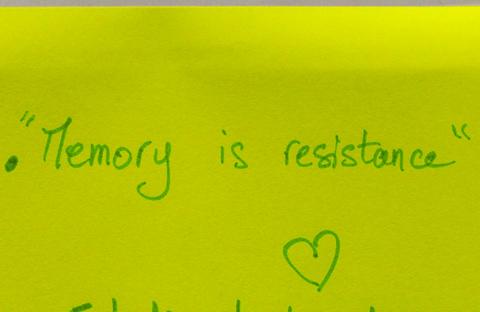 • "Memory is resistance"